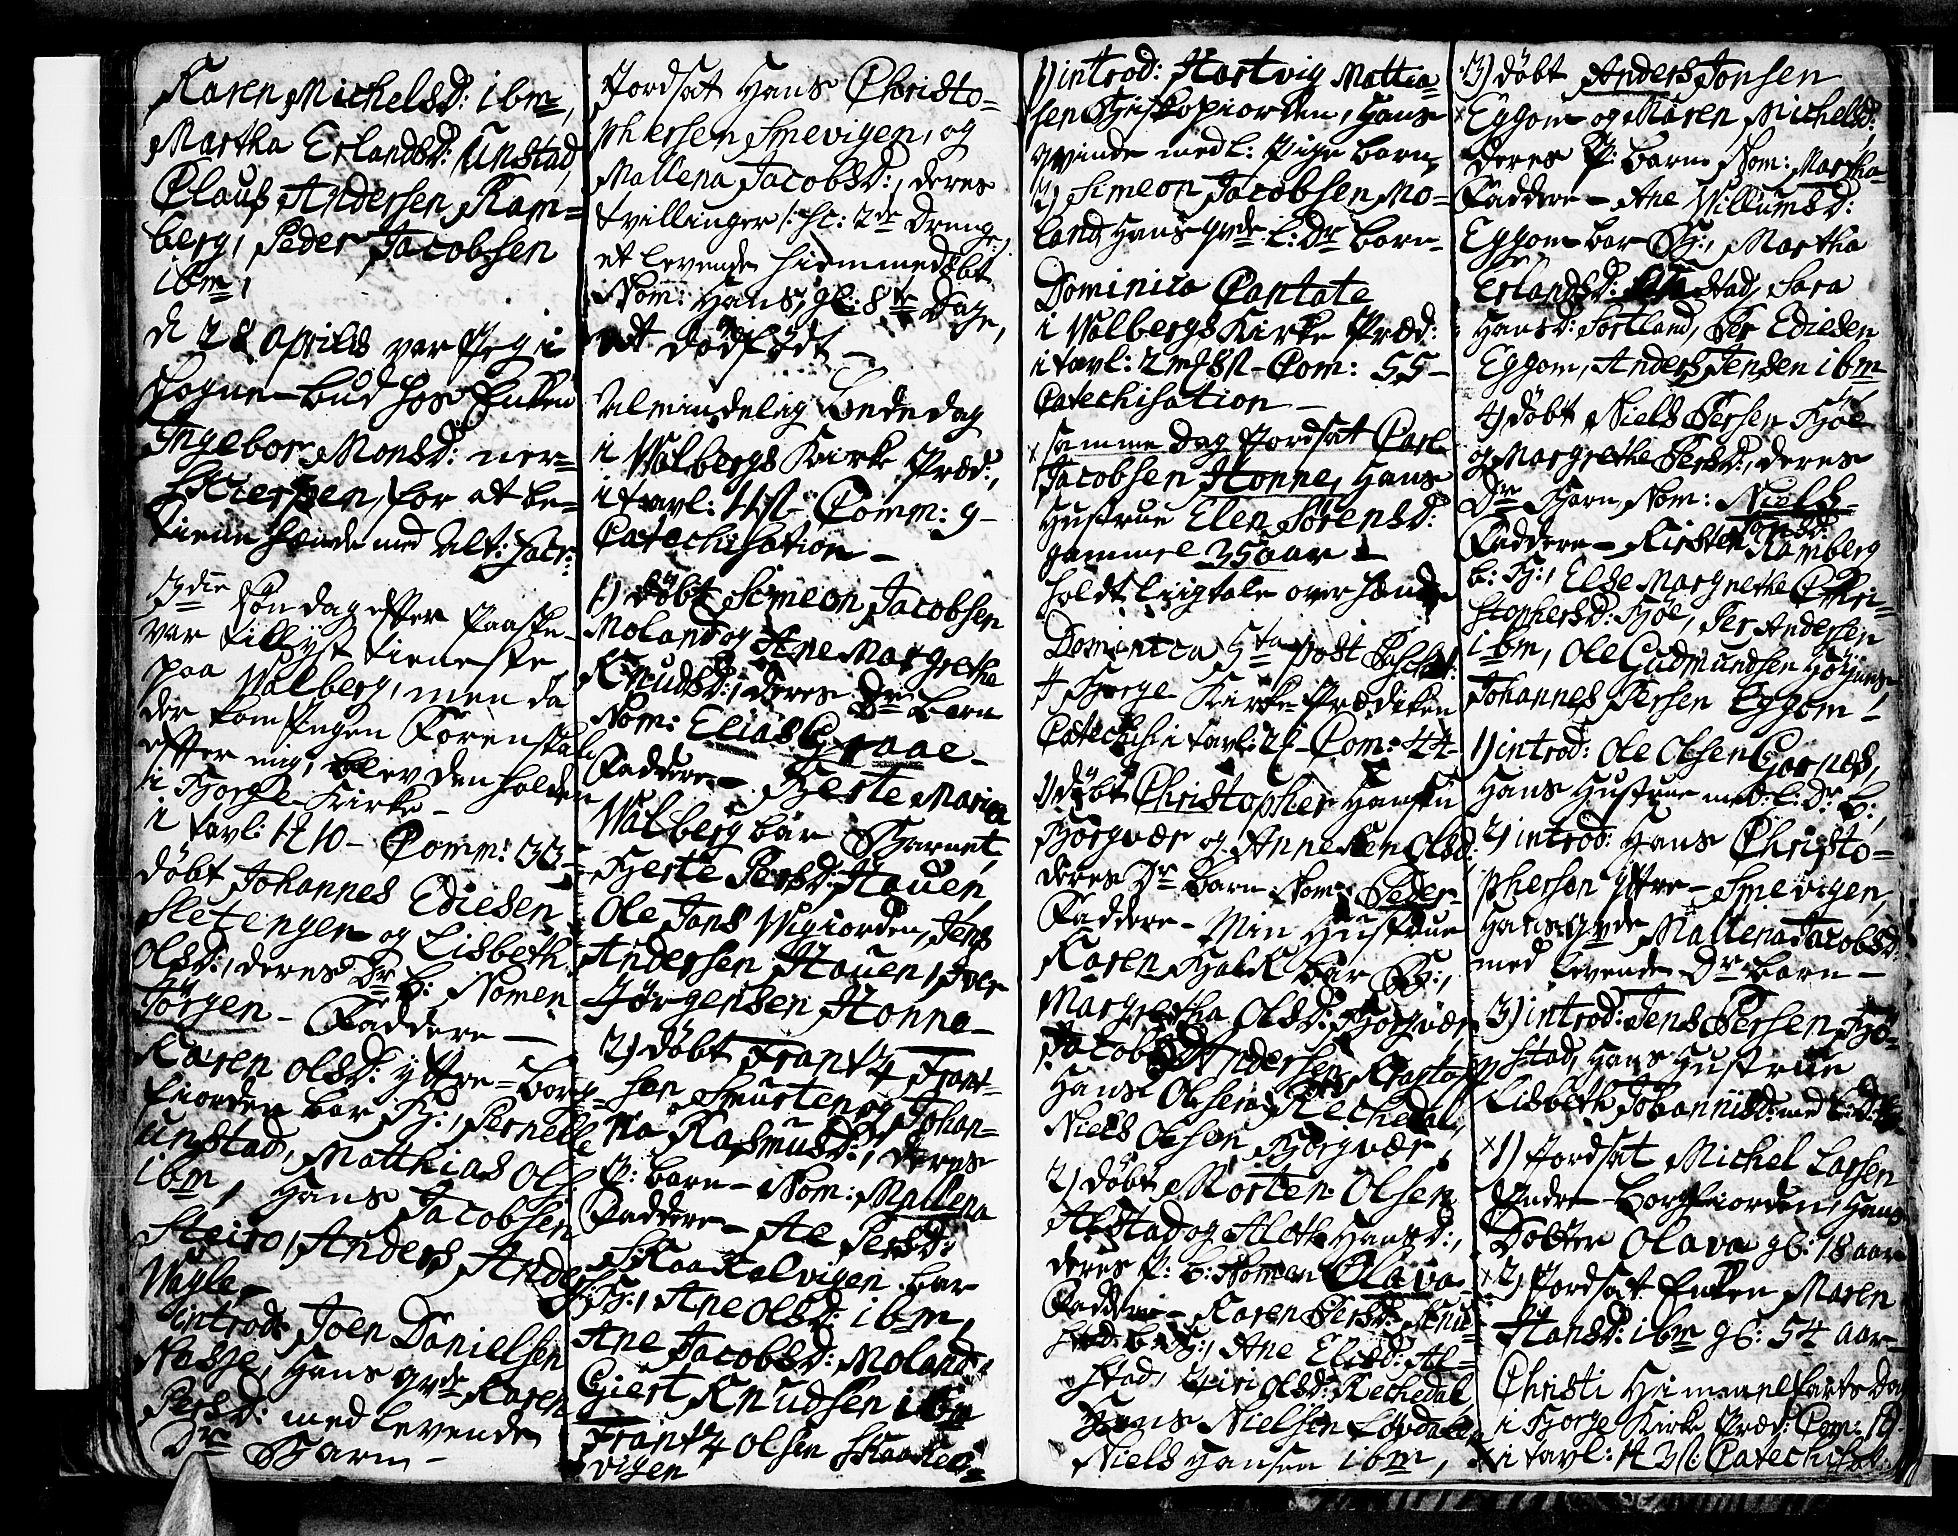 Karen Michelsd: ibm,
Martha Erlandsd: Unstad,
Claus Andersen Ram=
berg, Peder Jacobsen
ibm,
d 28 Aprilis var Jeg i
Sogne-bud hos Enken
Ingebor Monsd: ner=
Skierpen, for at be=
tiene hende med Alt: Sacr:
3die Søndag efter Paaske
var tillyst tieneste
paa Walberg, men da
der kom Ingen Förenskab
efter mig, blev den holden
i Borge Kirke -
i tavl: Comm: 33-
döbt Johannes Ediesen
Sletengen og Lisbeth
Olsd:, deres Dr b: Nomen
Jörgen - Faddere -
Karen Olsd: yttre-Borg-
fiorden bar B:, Pernelle
Unstad, Matthias Ols
ibm, Hans Jacobsen
Steiro, Anders Anders
Vagle -
introd: Joen Danielsen
Nasje, Hans qvde Karen
Persd: med levende
Dr Barn -
Jordsat Hans Christo-
phersen Smevigen, og
Mallena Jacobsd:, deres
tvillinger /: sc: 2de Drenge :/
et levende hiemmedöbt
Nom: Hans, gl: 8te Dage,
et dödfödt -
Almindelig Bededag
i Walbergs Kirke Præd:,
i tavl: Comm: 9-
Catechisation -
1) döbt Simeon Jacobsen
Moland og Ane Margrethe
Knudsd:, deres Dr Barn
Nom: Elias Graae -
Faddere - Bferte Maria
Walberg bar Barnet,
Berte Persd: Hauen,
Ole Jons Vigiorden, Jens
Andersen Hauen, Iver
Jörgensen Honne -
2) döbt Frantz Frant-
sen Smurten og Johan-
na Rasmusd:, deres
P: barn - Nom: Mallena
Faddere - Ane Persd:
Skaakelvigen bar
B:, Ane Olsd: ibm,
Ane Jacobsd: Moland,
Giert Knudsen ibm
Frantz Olsen Skaakel=
vigen
1) introd: Hartvig Mattia=
sen Biskopiorden, Hans
qvinde med l: Pige barn,
2) Simeon Jacobsen Mo=
land, Hans qvde l: Dr barn-
Dominica Cantate
i Walbergs Kirke Præd:
i tavl: 2 Com: 55-
Catechisation -
x samme Dag Jordsat Carl
Jacobsen Honne, Hans
Hustrue Elen Sörensd:
gammel 35 aar -
holdt liigtale over hende
Dominica 5ta post Pasch:
i Borge Kirke Prædiken
Catechis: i tavl: Com: 44-
1) döbt Christopher Hansen
Borgvær og Anneken Olsd:
deres Dr barn Nom: Peder-
Faddere - Min Hustrue
Karen Balck bar B:,
Margretha Olsd: Borgvær
Jacob Andersen
Hans Olsen Rechedal,
Niels Olsen Borgvær,
2) döbt Morten Olsen
Alstad og Aleth Hansd:,
deres P: b: Nomen Olava-
Faddere - Karen Persd:
bar B:, Ane Elisd: Al=
stad, Siri Olsd: Rechedal
Hans Nielsen Lövdal,
Niels Hansen ibm,
3) döbt Anders Jonsen
Eggom og Maren Michelsd:,
deres P: barn Nom: Martha-
Faddere - Ane Willumsd:
Eggom bar B:, Martha
Erlandsd: Unstad, Sara
Hansd: Sortland, Per Ediesen
Eggom, Anders Jensen ibm
4) döbt Niels Persen Böe
og Margrethe Persd:, deres
Dr Barn, Nom: Niels-
Faddere - Kirsten Jonsd: Ramberg
b: B:, Else Margrethe Chri-
stophersd: Böe, Per Andersen
ibm, Ole Gudmundsen
Johannes Persen Eggom -
1) introd: Ole Olsen Hans Hustrue med l: Dr b:,
2) introd: Hans Christo-
phersen yttre - Smevigen,
Hans qvde Mallena Jacobsd:
med levende Dr barn -
3) introd: Jens Persen Bö=
stad, Hans Hustrue
Lisbeth Johannisd: med l: Dr b:
x 1) Jordsat Michel Larsen
Indre - Borgfiorden, Hans
Dotter Olava gl: 18 aar
x 2) Jordsat Enken Maren
Hansd: ibm gl: 54 aar-
Christi Himmelfarts Dag
i Borge Kirke Præd: Com: 18
i tavl: Catechisat: